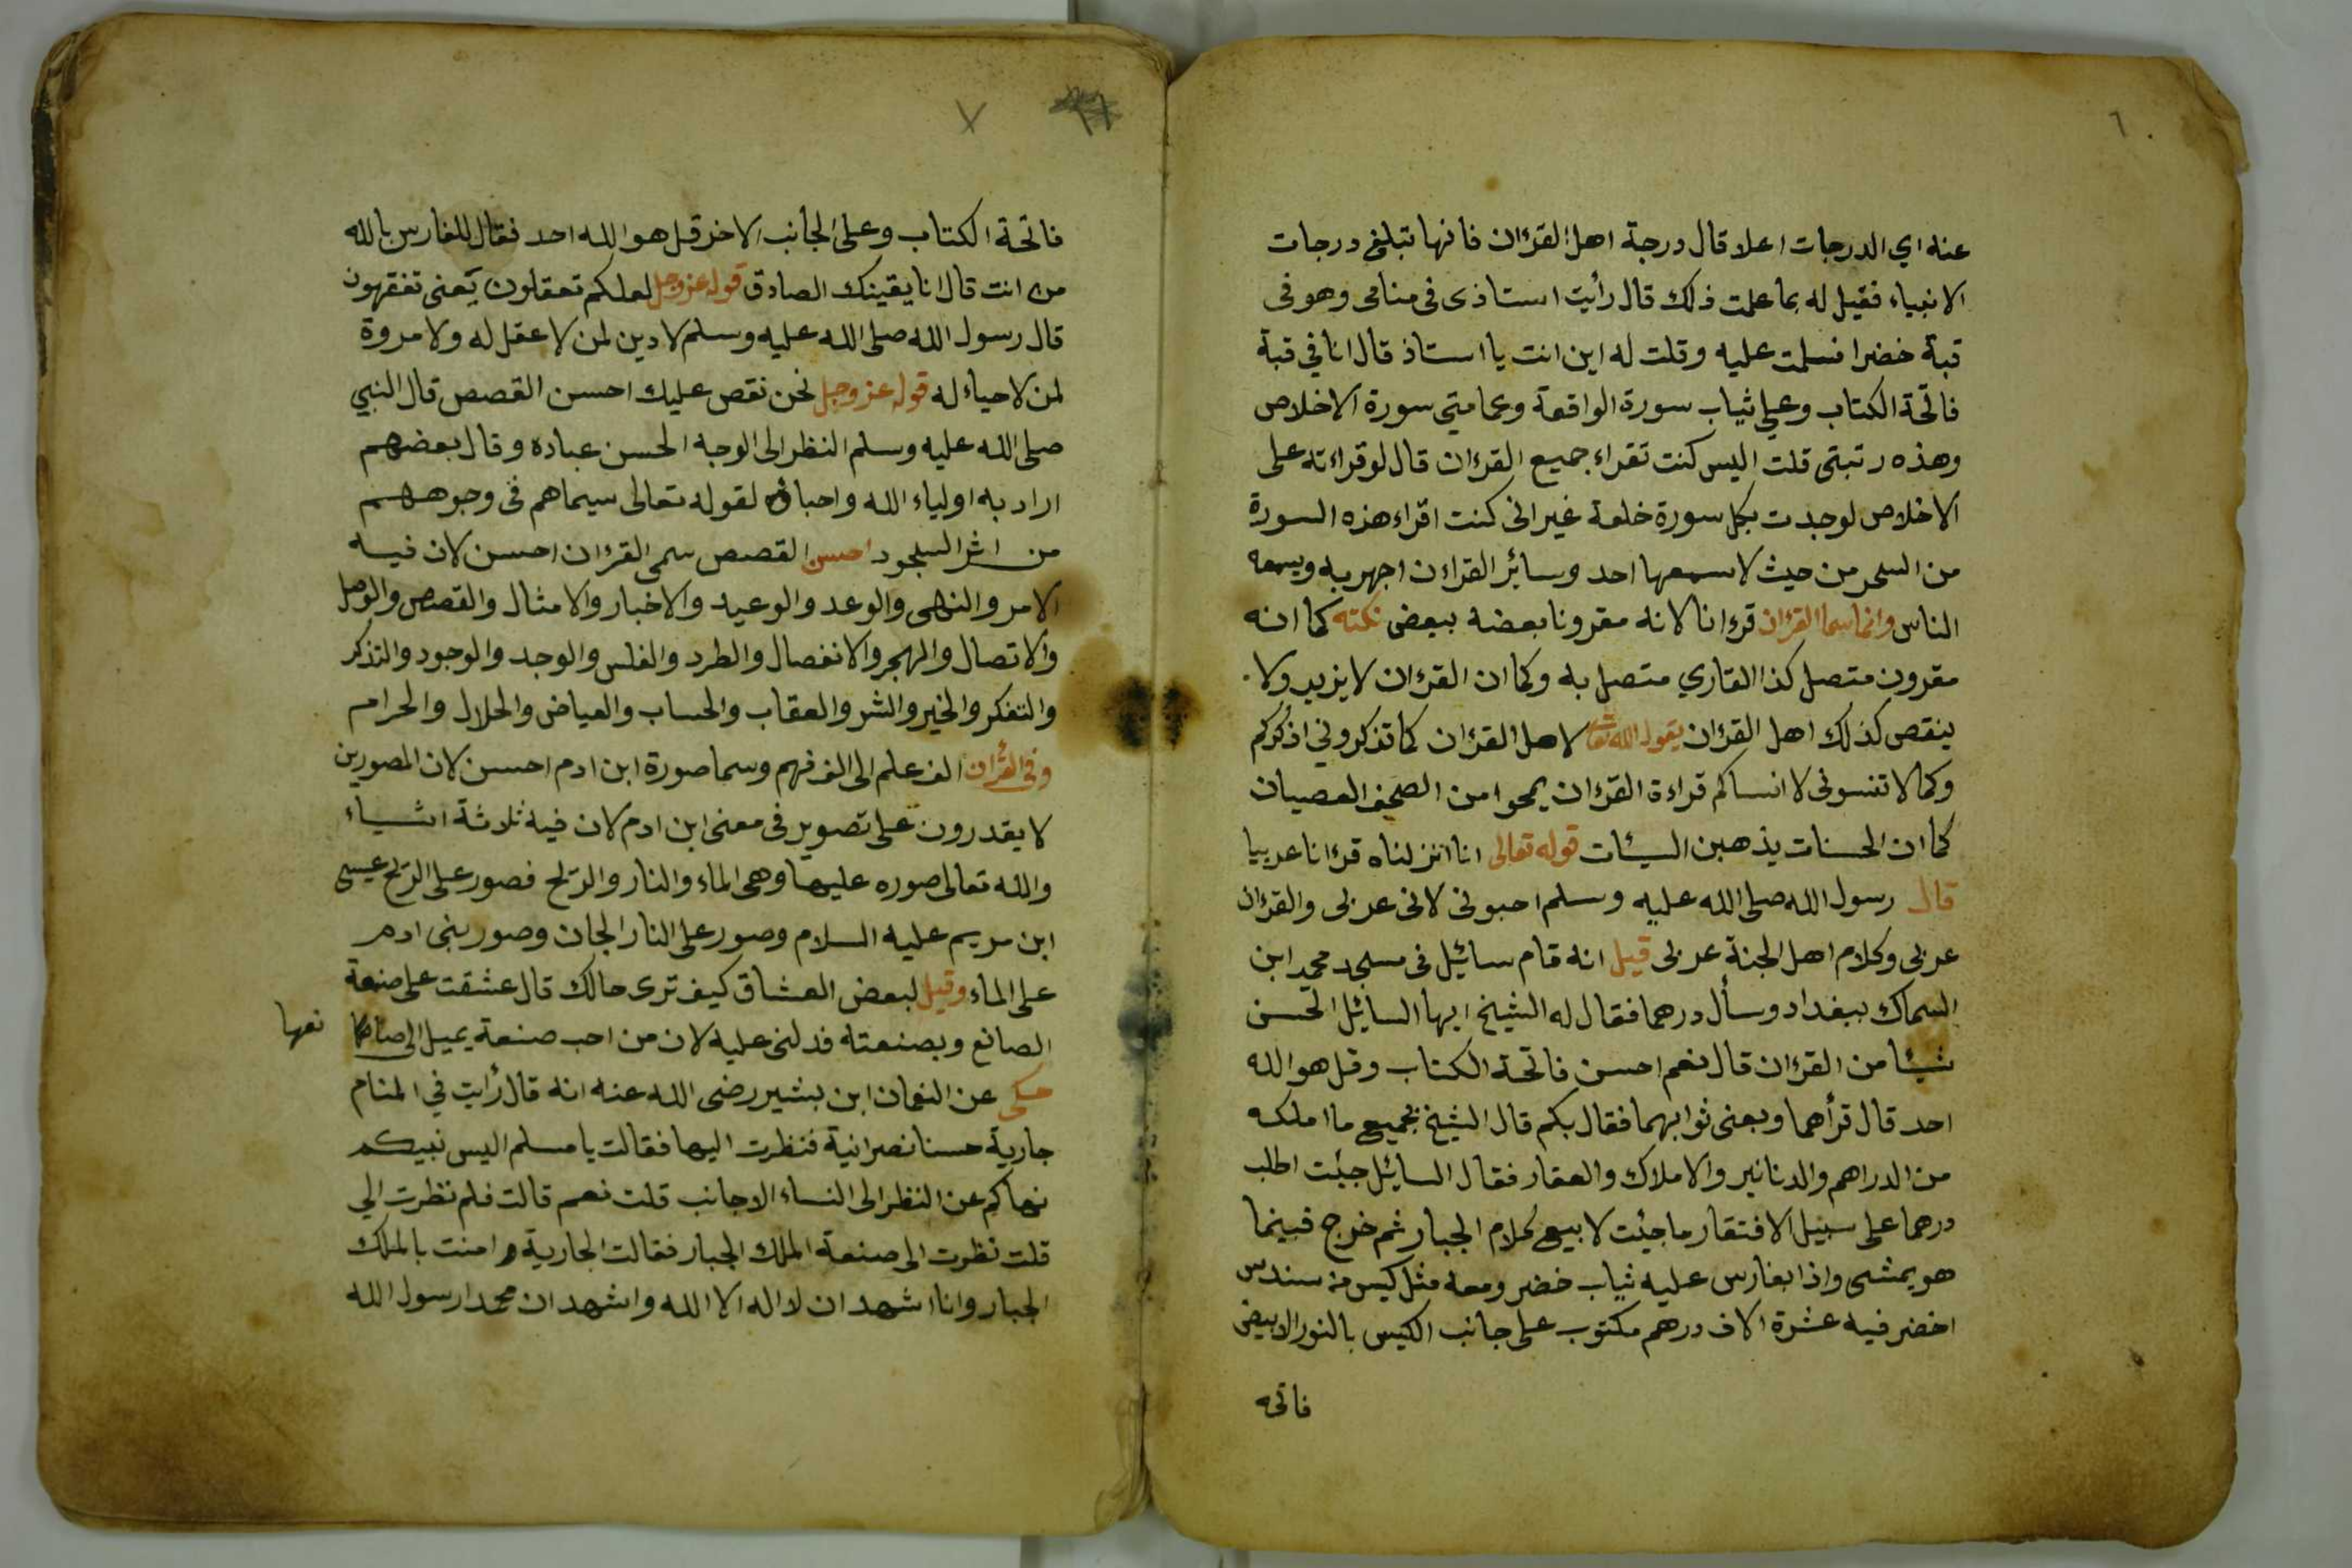 ٦
عنه اي الدرجات اعلا قال درجة اهل القرءان فانها تبلغ درجات
الانبياء فقيل له بما علمت ذلك قال رأيت استاذى فى منامى وهو فى
قبة خضرا فسلمت عليه وقلت له اين انت يا استاذ قال انا في قبة
فاتحة الكتاب وعلي ثياب سورة الواقعة وعمامتي سورة الاخلاص
وهذه رتبتى قلت اليس كنت تقراء جميع القرءان قال لو قراءته على
الاخلاص لوجدت بكل سورة خلعة غير انى كنت اقراء هذه السورة
من السحر من حيث لا يسمعها احد وسائر القراءن اجهر به ويسمعه
الناس وانما سما القرءان قرءانا لانه مقرونا بعضه ببعض نكته كما انه
مقرون متصل كذا القاري متصل به وكما ان القرءان لا يزيد ولا
ينقص كذلك اهل القرءان يقول الله تعالى لاهل القرءان كما تذكروني اذكركم
وكما لا تنسونى لا انساكم قراءة القرءان يمحوا من الصحف العصيان
كما ان الحسنات يذهبن السيئات قوله تعالى انا انزلناه قرءانا عربيا
قال رسول الله صلى الله عليه وسلم احبونى لانى عربى والقرءان
عربى وكلام اهل الجنة عربى قيل انه قام سائيل فى مسجد محمد ابن
السماك ببغداد وسأل درهما فقال له الشيخ ايها السائيل اتحسن
شيئا من القرءان قال نعم احسن فاتحة الكتاب وقل هو الله
احد قال قرأهما وبعنى ثوابهما فقال بكم قال الشيخ بجميع ما املكه
من الدراهم والدنانير والاملاك والعقار فقال السائيل جيئت اطلب
درهما على سبيل الافتقار ما جيئت لابيع كلام الجبار ثم خرج فبينما
هو يمشى واذا بفارس عليه ثياب خضر ومعه مثل كيس من سندس
اخضر فيه عشرة الاف درهم مكتوب على جانب الكيس بالنور الابيض
فاتحه
٧
فاتحة الكتاب وعلى الجانب الاخر قل هو الله احد فقال للفارس بالله
من انت قال انا يقينك الصادق قوله عز وجل لعلكم تعقلون يعنى تفقهون
قال رسول الله صلى الله عليه وسلم لا دين لمن لا عقل له ولا مروة
لمن لا حياء له قوله عز وجل نحن نقص عليك احسن القصص قال النبي
صلى الله عليه وسلم النظر الى الوجه الحسن عباده وقال بعضهم
اراد به اولياء الله واحباؤه لقوله تعالى سيماهم فى وجوههم
من اثر السجود احسن القصص سمى القرءان احسن لان فيه
الامر والنهى والوعد والوعيد والاخبار والامثال والقصص والوصل
والاتصال والهجر والانفصال والطرد والوجد والوجود والتذكر
والتفكر والخير والشر والعقاب والحساب والعياض والحلال والحرام
وفى القرءان الف علم الى الف فهم وسما صورة ابن ادم احسن لان المصورين
لا يقدرون على تصوير فى معنى ابن ادم لان فيه ثلاثة اشياء
والله تعالى صوره عليها وهى الماء والنار والريح فصور على الريح عيسى
ابن مريم عليه السلام وصور على النار الجان وصور بنى ادم
على الماء وقيل لبعض العشاق كيف ترى حالك قال عشقت على صنعة
الصانع وبصنعته فدلنى عليه لان من احب صنعة يميل الى صانعها
نعها
حكى عن النعمان ابن بشير رضى الله عنه انه قال رأيت في المنام
جارية حسنا نصرانية فنظرت اليها فقالت يا مسلم اليس نبيكم
نهاكم عن النظر الى النساء الاجانب قلت نعم قالت فلم نظرت الي
قلت نظرت الى صنعة الملك الجبار فقالت الجارية امنت بالملك
الجبار وانا اشهد ان لا اله الا الله واشهد ان محمدا رسول الله